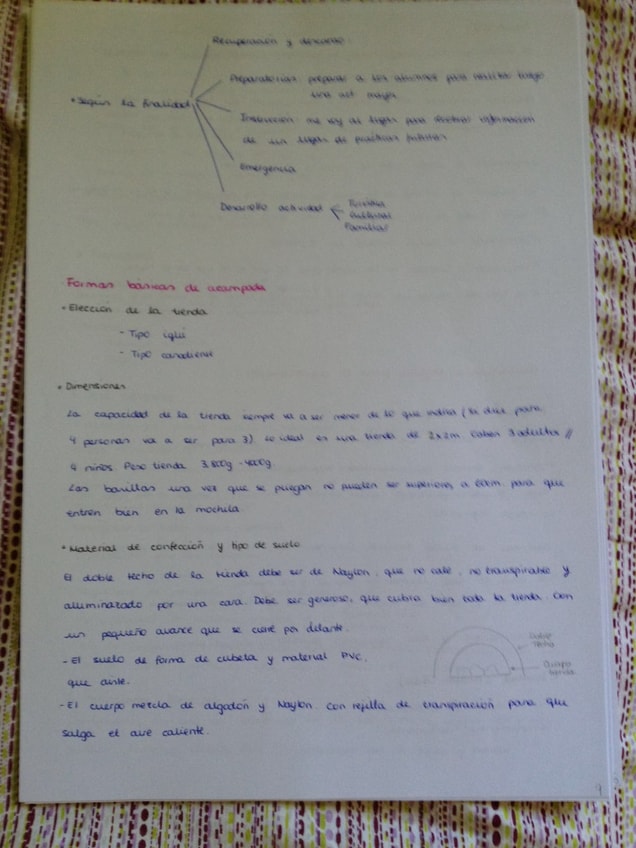 Recuperación y descanso
Preparatorias: preparar a los alumnos para realizar luego
una act mayor
• Según la finalidad
Instrucción: me voy al lugar para obtener información
de un lugar de prácticas futuras
Emergencia
Desarrollo actividad
Turística
Culturas
Familiar
Formas básicas de acampada
• Elección de la tienda
- Tipo iglú
- Tipo canadiense
• Dimensiones
La capacidad de la tienda siempre va a ser menor de lo que indica (si dice para
4 personas va a ser para 3). Lo ideal es una tienda de 2x2m. Caben 3 adultos //
4 niños. Peso tienda 3.800g - 4000g.
Las barillas una vez que se pliegan no pueden ser superiores a 60cm. para que
entren bien en la mochila.
• Material de confección y tipo de suelo
El doble techo de la tienda debe ser de Naylon, que no cale, no transpirable y
aluminizado por una cara. Debe ser generoso, que cubra bien toda la tienda. Con
un pequeño avance que se cierre por delante.
- El suelo de forma de cubeta y material PVC,
que aisle.
Doble
techo
Cuerpo
tienda
- El cuerpo mezcla de algodón y Naylon. Con rejilla de transpiración para que
salga el aire caliente.